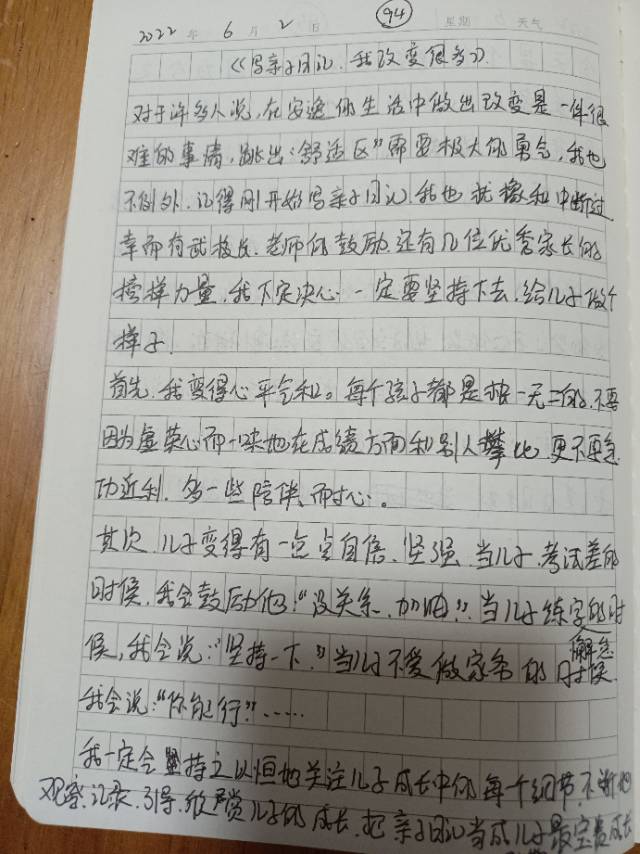 2022年6月2日 94 星期 天气
《写亲子日记,我改变很多》
对于许多人说,在安逸的生活中做出改变是一件很
难的事情,跳出“舒适区”需要极大的勇气,我也
不例外.记得刚开始写亲子日记,我也犹豫和中断过
幸而有武校长.老师的鼓励.还有几位优秀家长的
榜样力量,我下定决心一定要坚持下去,给儿子做个
样子.
首先,我变得心平气和。每个孩子都是独一无二的,不要
因为虚荣心而一味地在成绩方面和别人攀比,更不要急
功近利,多一些陪伴、耐心。
其次,儿子变得有一点点自信、坚强,当儿子考试差的
时候,我会鼓励他:“没关系,加油”,当儿子练字的时
候,我会说:“坚持一下,”当儿子不爱做家务的时候
我会说:“你能行”……
我一定会坚持立以恒地关注儿子成长中的每个细节,不断地
观察、记录、引导、欣赏儿子的成长,把亲子日记当成儿子最宝贵成长